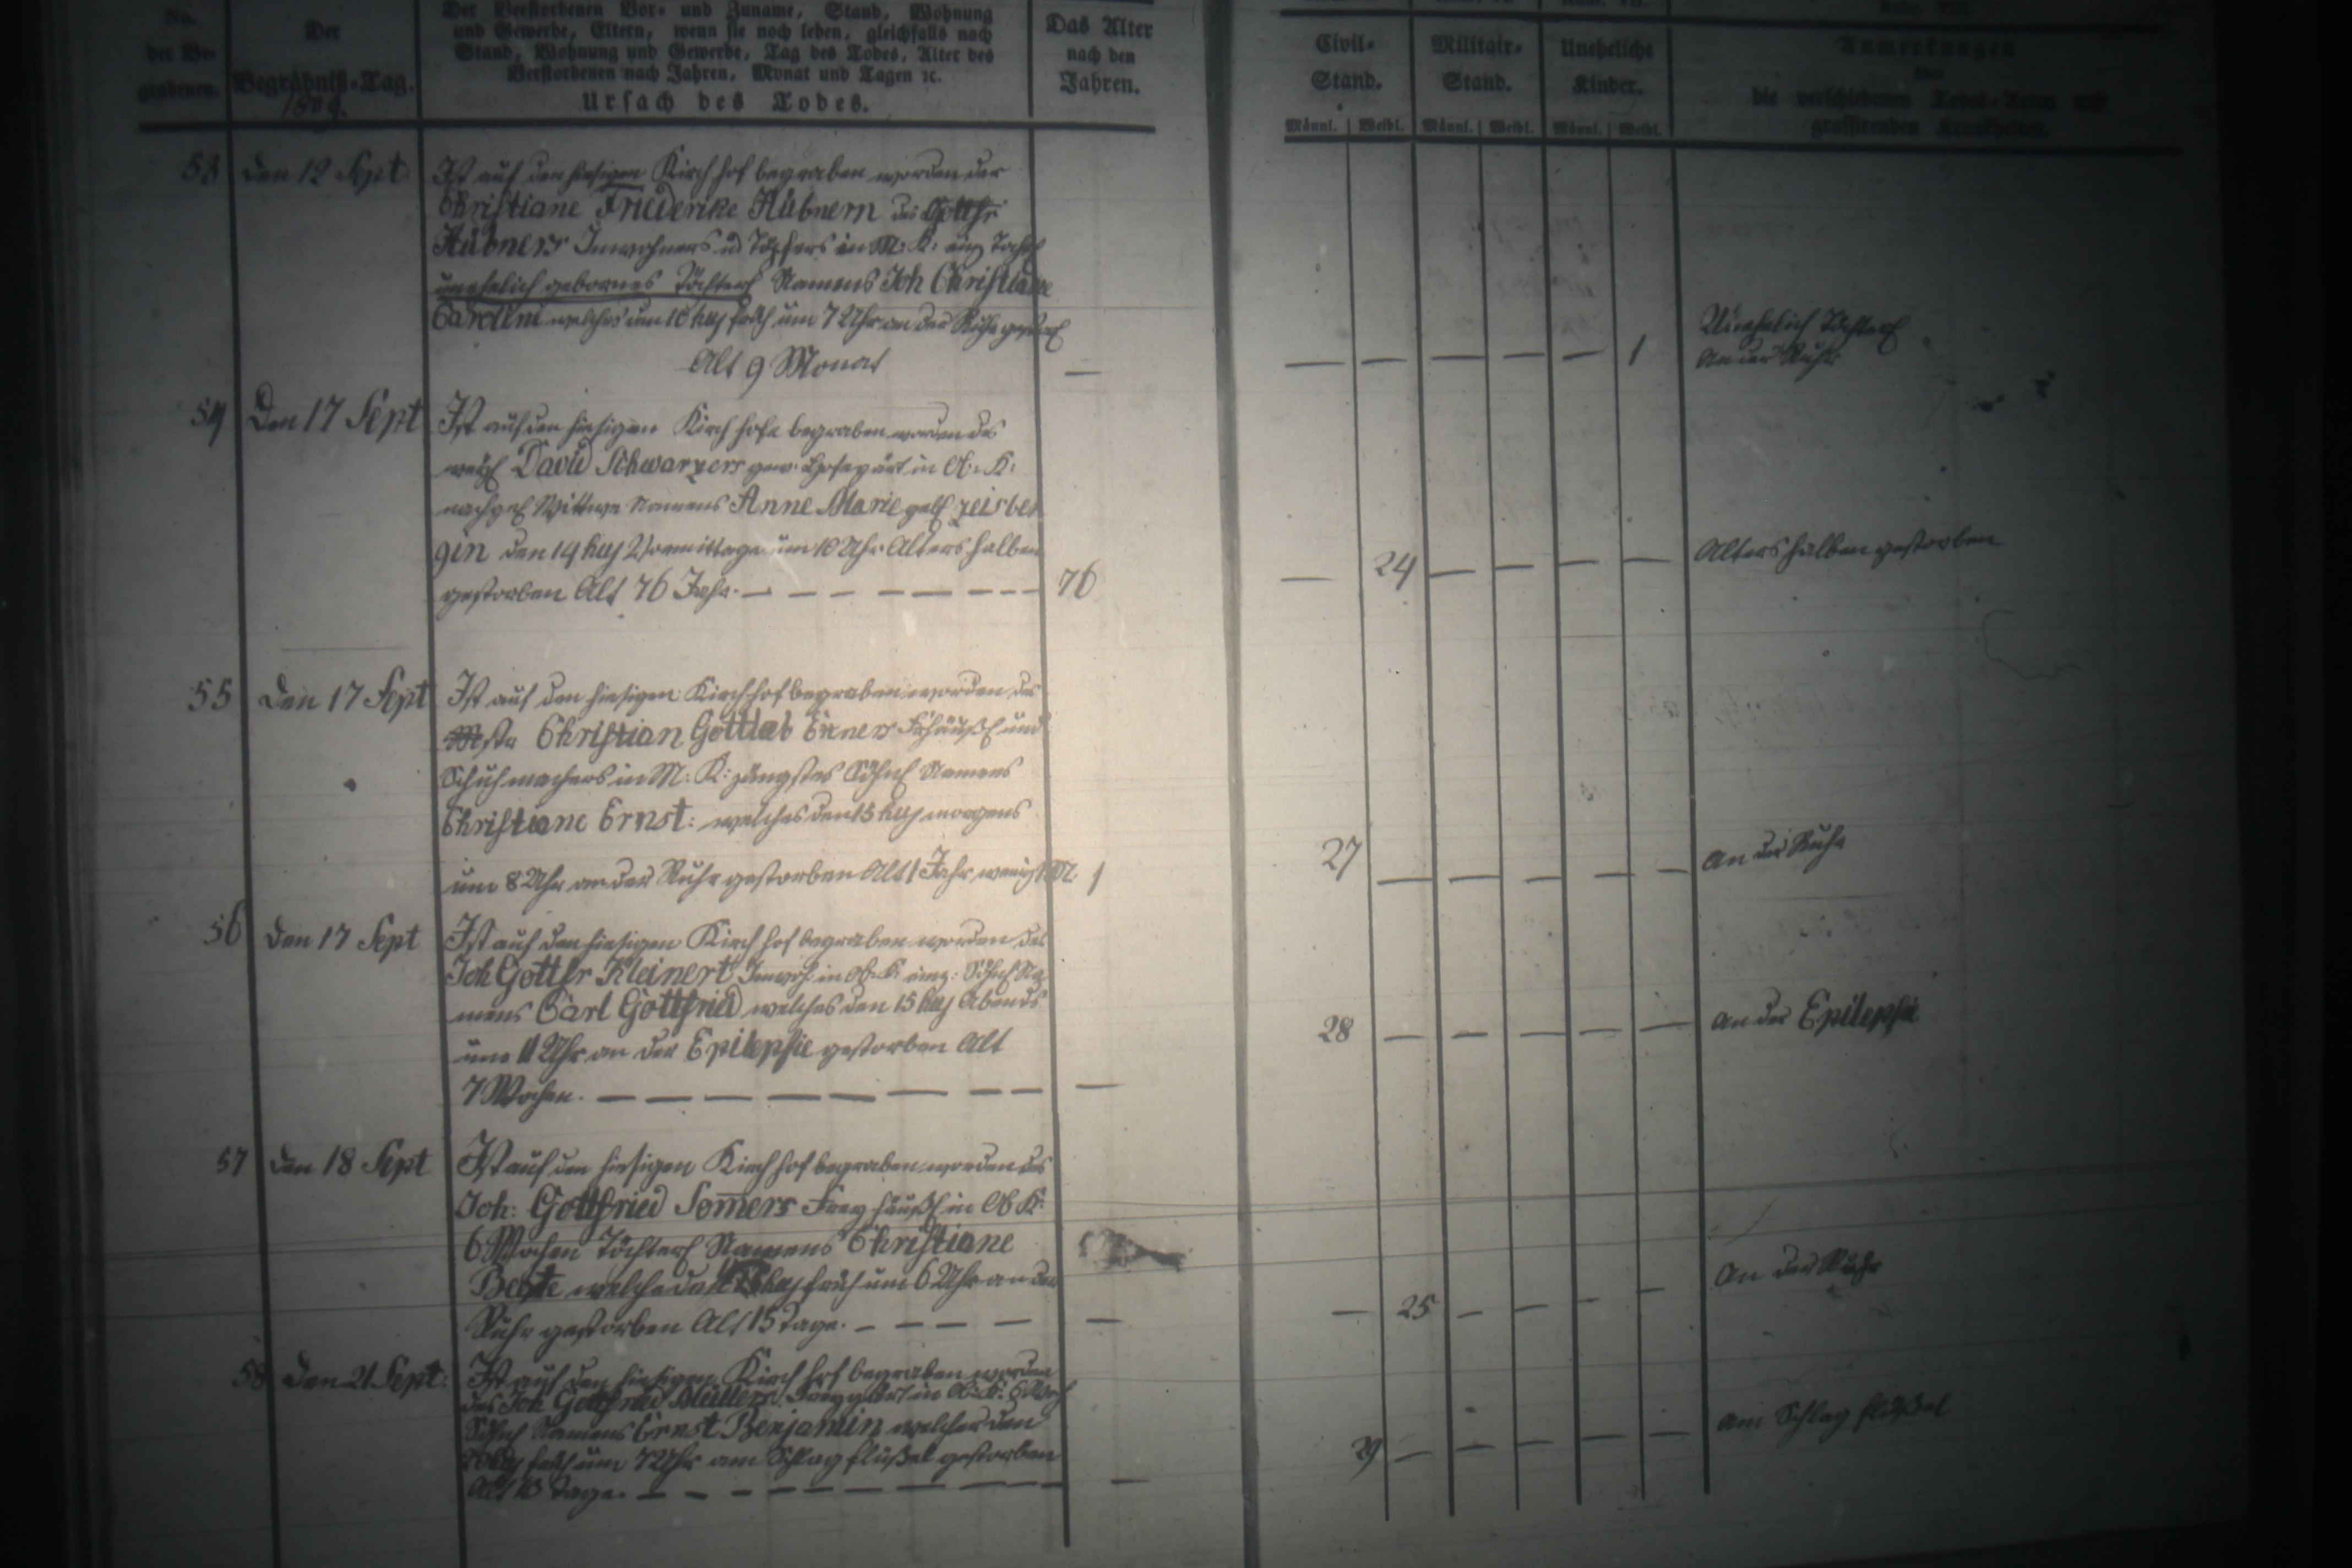 No. der Begrabenen.
Der Begräbniß-Tag.
1809.
Der Verstorbenen Vor- und Zuname, Stand, Wohnung
und Gewerbe, Eltern, wenn sie noch leben, gleichfalls nach
Stand, Wohnung und Gewerbe, Tag des Todes, Alter des
Verstorbenen nach Jahren, Monat und Tagen ꝛc.
Ursach des Todes.
Das Alter
nach den
Jahren.
Civil-
Stand.
Militair-
Stand.
Uneheliche
Kinder.
Anmerkungen
über
die verschiedenen Todes-Arten und
grassirenden Krankheiten.
Männl. Weibl. Männl. Weibl. Männl. Weibl.
53 den 12 Sept: Ist auf den hiesigen Kirchhof begraben worden der
Christiane Friederike Hübnern des Gottfr
Hübners Inwohners u Töpfers in M: K:
unehelich gebornes Töchterl Namens Joh Christiane
Carolina welches den 10 huj früh um 7 Uhr an der Ruhr gestorb
Alt 9 Monat —
— — — — — 1
Unehelich Töchterl
An der Ruhr
54 Den 17 Sept Ist auf den hiesigen Kirchhofe begraben worden des
David Schwarzers gew: in O: K:
Wittwe Namens Anne Marie geb Zeisber
gin den 14 huj Vormittags um 10 Uhr Alters halben
gestorben Alt 76 Jahr. — — — — — — — 76
— 24 — — — —
Alters halben gestorben
55 Den 17 Sept Ist auf den hiesigen Kirchhof begraben worden des
Mstr Christian Gottlieb Exners Frhäusl und
Schuhmachers in M: K: jüngstes Söhnl Namens
Christiane Ernst: welches den 15 huj morgens
um 8 Uhr an der Ruhr gestorben Alt 1 Jahr wenig 1 M. 1
27 — — — — —
An der Ruhr
56 Den 17 Sept Ist auf den hiesigen Kirchhof begraben worden des
Joh Gottfr Kleinert Inwoh: in Ob: K: einz: Söhnl Na
mens Carl Gottfried welches den 15 huj Abends
um 11 Uhr an der Epilepsie gestorben Alt
7 Wochen. — — — — — — — —
28 — — — — —
An der Epilepsie
57 Den 18 Sept Ist auf den hiesigen Kirchhof begraben worden des
Joh: Gottfried Som̄ers Freyhäusl in Ob K:
6 Wochen Töchterl Namens Christiane
Beate welche huj früh um 6 Uhr an der
Ruhr gestorben Alt 15 Tage. — — — — —
— 25 — — — —
An der Ruhr
58 Den 21 Sept: Ist auf den hiesigen Kirchhof begraben worden
des Joh Gottfried Müllers Freygärt in O: K: 6 Woch
Söhnl Namens Ernst Benjamin welcher den
20 huj früh um 7 Uhr am Schlagflüßel gestorben
Alt 13 Tage. — — — — — — — —
29 — — — — —
Am Schlagflüßel